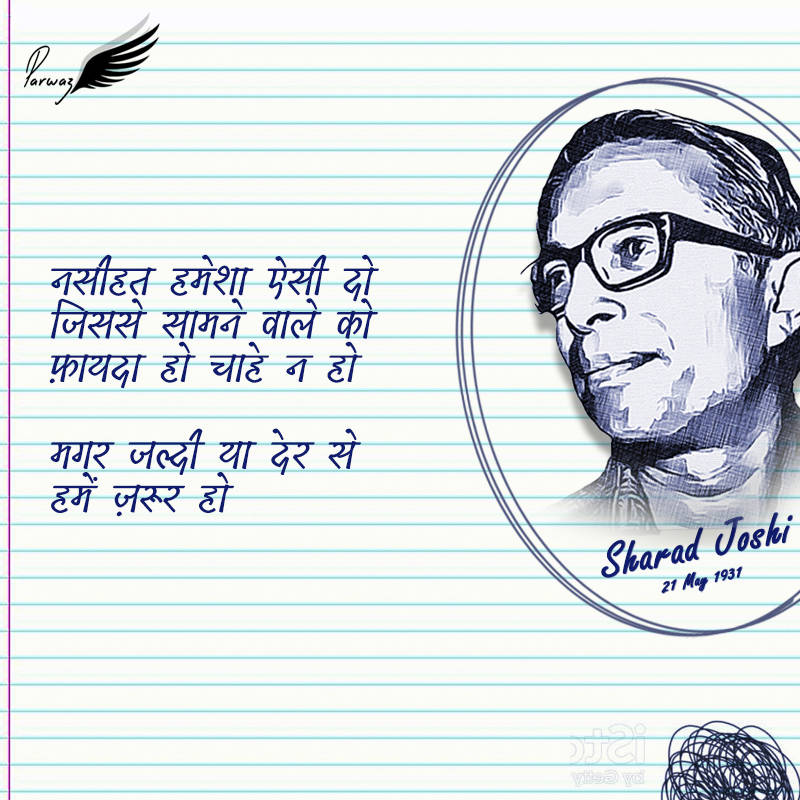 Parwaz
नसीहत हमेशा ऐसी दो
जिससे सामने वाले को
फ़ायदा हो चाहे न हो
मगर जल्दी या देर से
हमें ज़रूर हो
Sharad Joshi
21 May 1931
iStoc
by Getty